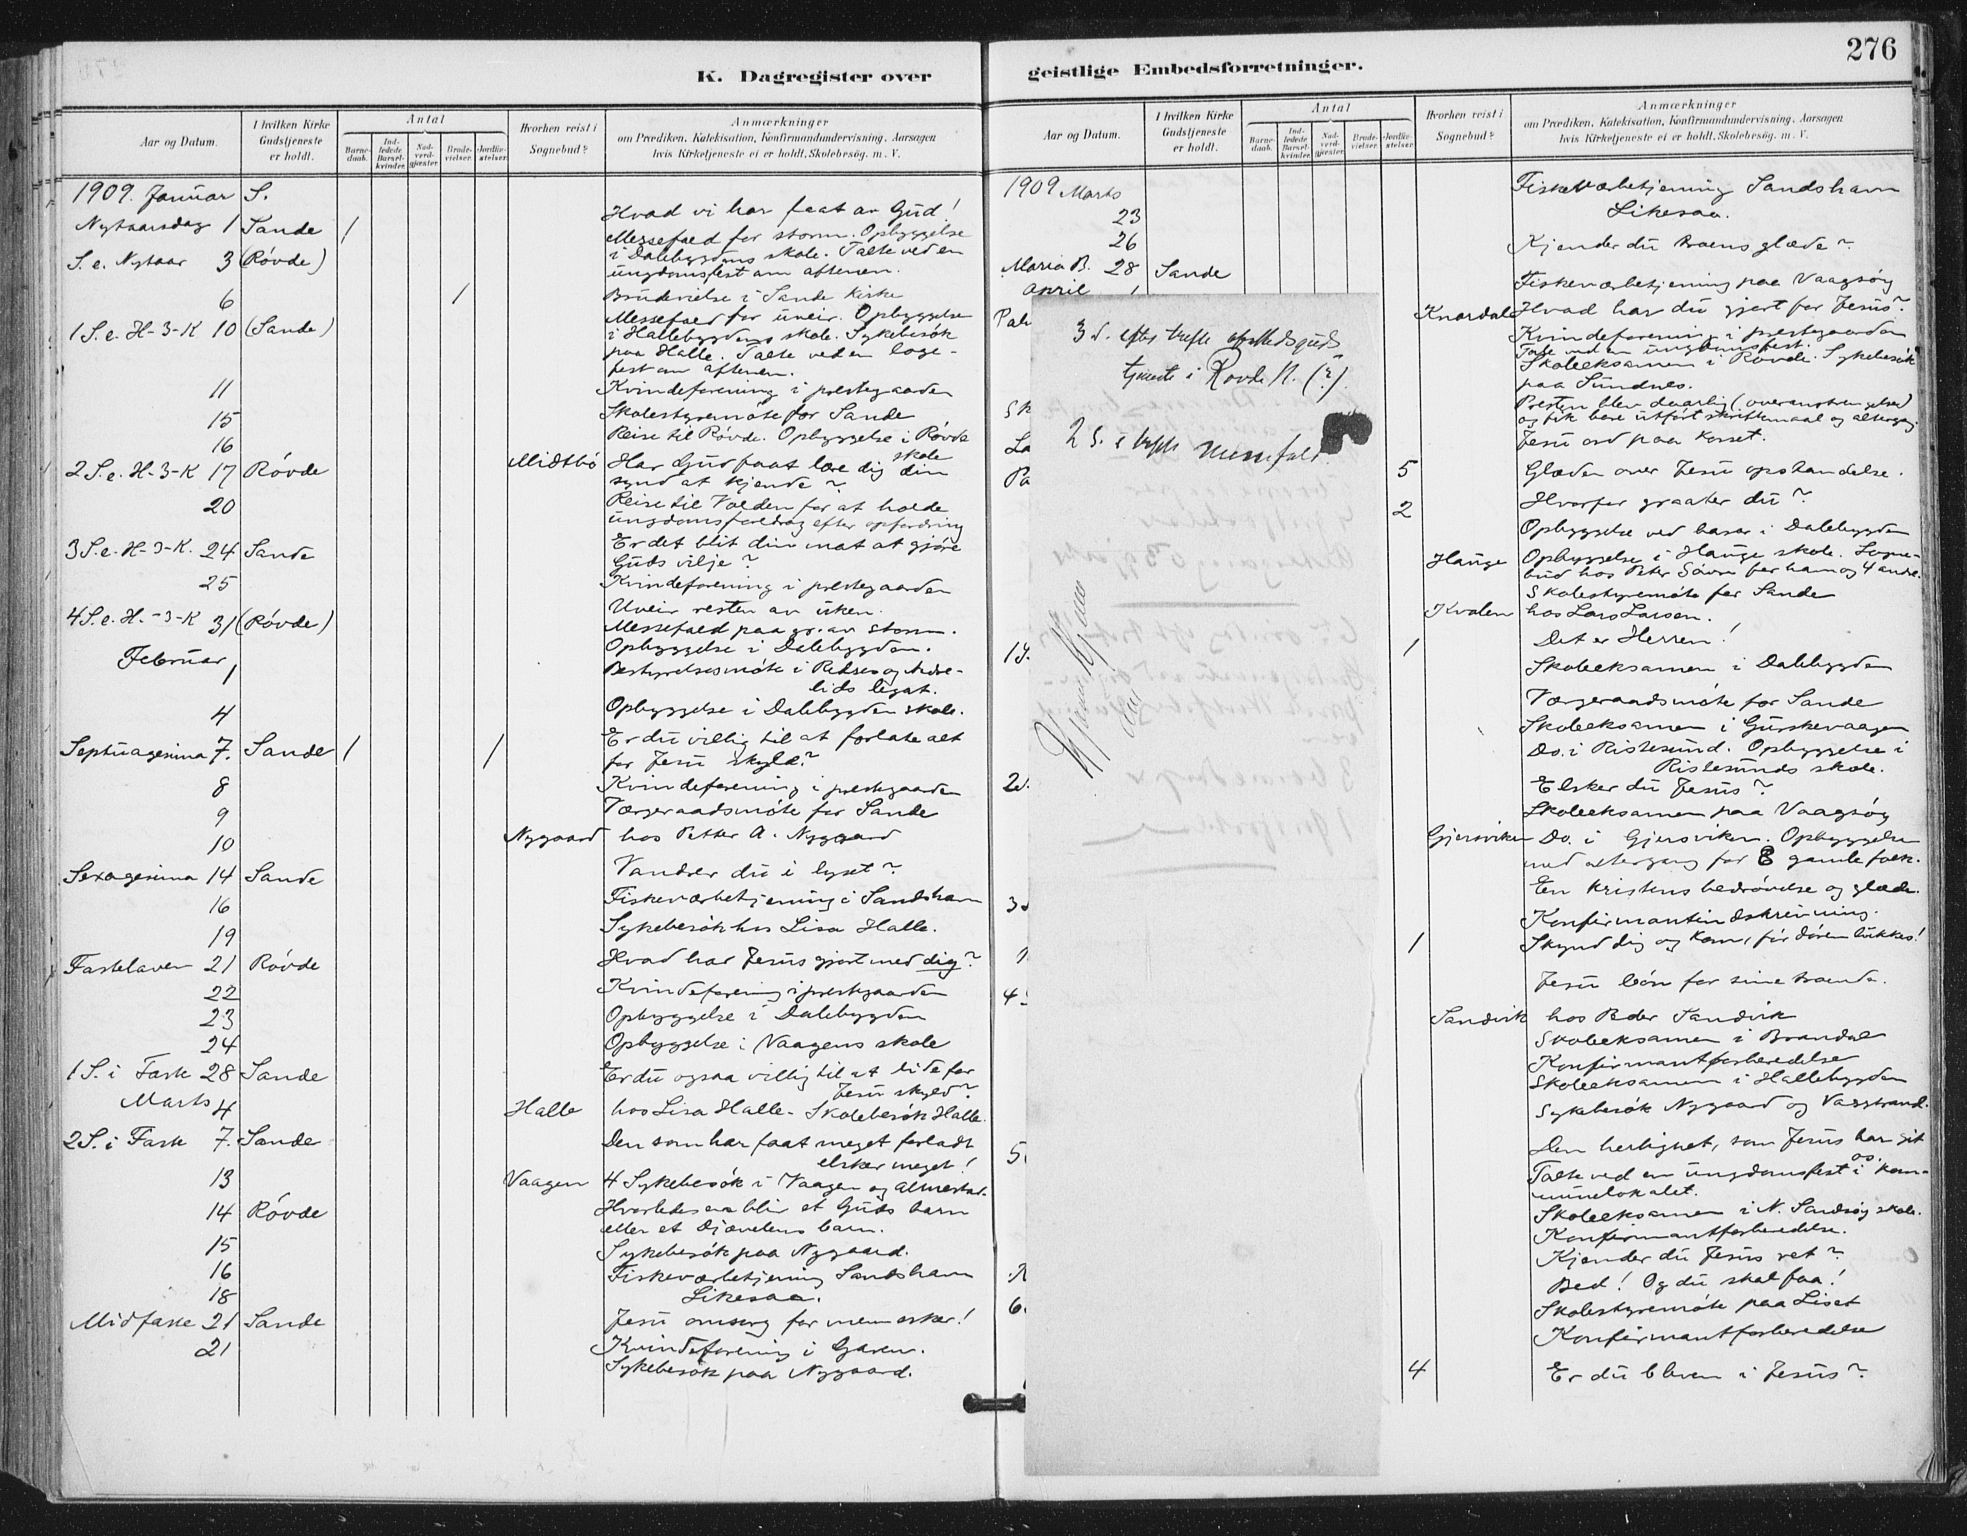 K. Dagregister over
Aar og Datum.
I hvilken Kirke Gudstjeneste er holdt.
Antal
Barne-daab.
Ind-ledede Barsel-kvinder.
Nad-verd-gjester.
Brude-vielser.
Jordfæ-stelser.
Hvorhen reist i Sognebud?
Anmærkninger
om Prædiken, Katekisation, Konfirmandundervisning, Aarsagen
hvis Kirketjeneste ei er holdt, Skolebesøg. m. V.
1909. Januar S.
Nytaarsdag 1 Sande 1 Hvad vi har faat av Gud!
S. e. Nytaar 3 (Røvde) Messefald for storm. Opbyggelse
i Dalebygdens skole. Talte ved en
ungdomsfest om aftenen.
6 1 Brudevielse i Sande Kirke
1 S. e. H-3-K 10 (Sande) Messefald for uveir. Opbyggelse
i Hallebygdens skole. Sykebesøk
paa Halle. Talte ved en loge-
fest om aftenen.
11 Kvindeforening i prestegaarden
15 Skolestyremøte for Sande
16 Reise til Røvde. Opbyggelse i Røvde
skole
2 S. e. H-3-K 17 Røvde Midtbø Har Gud faat lære dig din
synd at kjende?
20 Reise til Volden for at holde
ungdomsforedrag efter opfordring
3 S. e. H-3-K. 24 Sande Er det blit din mat at gjøre
Guds vilje?
25 Kvindeforening i prestegaarden
Uveir resten av uken.
4 S. e. H.-3-K 31 (Røvde) Messefald paa gr. av storm.
Opbyggelse i Dalebygden.
Februar 1 Bestyrelsesmøte i
lids legat.
4 Opbyggelse i Dalebygden skole.
Septuagesima 7. Sande 1 1 Er du villig til at forlate alt
for Jesu skyld?
8 Kvindeforening i prestegaarden
9 Værgeraadsmøte for Sande
10 Nygaard hos Petter A. Nygaard
Sexagesima 14 Sande Vandrer du i lyset?
16 Fiskeværbetjening i Sandshavn
19 Sykebesøk hos Lisa Halle.
Fastelaven 21 Røvde Hvad har Jesus gjort med dig?
22 Kvindeforening i prestegaarden
23 Opbyggelse i Dalebygden
24 Opbyggelse i Vaagens skole
1 S. i Faste 28 Sande Er du ogsaa villig til at lide for
Jesu skyld?
Marts 4 Halle hos Lisa Halle - Skolebesøk Halle.
2 S. i Faste 7. Sande Den som har faat meget forladt
elsker meget!
13 Vaagen 4 Sykebesøk i Vaagen og Almestad.
14 Røvde Hvorledes en blir et Guds barn
eller et djævelens barn.
15 Sykebesøk paa Nygaard.
16 Fiskeværbetjening Sandshavn
18 Likesaa.
Midfaste 21 Sande Jesu omsorg for mennesker!
21 Kvindeforening i Garen.
Sykebesøk paa Nygaard.
geistlige Embedsforretninger.
276
Aar og Datum.
I hvilken Kirke Gudstjeneste er holdt.
Antal
Barne-daab.
Ind-ledede Barsel-kvinder.
Nad-verd-gjester.
Brude-vielser.
Jordfæ-stelser.
Hvorhen reist i Sognebud?
Anmærkninger
om Prædiken, Katekisation, Konfirmandundervisning, Aarsagen
hvis Kirketjeneste ei er holdt, Skolebesøg. m. V.
1909 Marts
23 Fiskeværbetjening Sandshavn
26 Likesaa.
Maria B. 28 Sande Kjender du Troens glæde?
April 1 Fiskeværbetjening paa Vaagsøy
Pal Knardal Hvad har du gjort for Jesus?
Kvindeforening i prestegaarden
Talte ved en ungdomsfest.
Skoleeksamen i Røvde. Sykebesøk
paa Sundnes.
Sk Presten blev daarlig (overanstrengelse)
og fik bare utført skriftemaal og altergang
La Jesu ord paa korset.
Pa 5 Glæden over Jesu opstandelse.
2 Hvorfor graater du?
Opbyggelse ved basar i Dalebygden
Hauge Opbyggelse i Hauge skole. Sogne-
bud hos Peter Søvre for ham og 4 andre.
Skolestyremøte for Sande
Kvalen hos Lars Larsen.
1 S. 1 Det er Herren!
Skoleeksamen i Dalebygden
Værgeraadsmøte for Sande
Skoleeksamen i Gurskevaagen
Do. i Ristesund. Opbyggelse i
Ristesunds skole.
2. Elsker du Jesus?
Skoleeksamen paa Vaagsøy
Gjersviken Do. i Gjersviken. Opbyggelse
med altergang for 8 gamle folk.
3 En kristens bedrøvelse og glæde.
Konfirmantindskrivning.
1 Skynd dig og kom, før døren lukkes!
4 Jesu bøn for sine venner.
Sandvik hos Peder Sandvik
Skoleeksamen i Brandal
Konfirmantforberedelse
Skoleeksamen i Hallebygden
Sykebesøk Nygaard og Vaagstrand.
5 Den herlighet, som Jesus har git
os.
Talte ved en ungdomsfest i kom-
munelokalet.
Skoleeksamen i N. Sandsøy skole.
Konfirmantforberedelse.
Kjender du Jesus ret?
6 Bed! Og du skal faa!
Skolestyremøte paa Liset
Konfirmantforberedelse
4 Er du bleven i Jesus?
3 S. efter
tjeneste i Rovde N. (?).
2 S. e messefald.